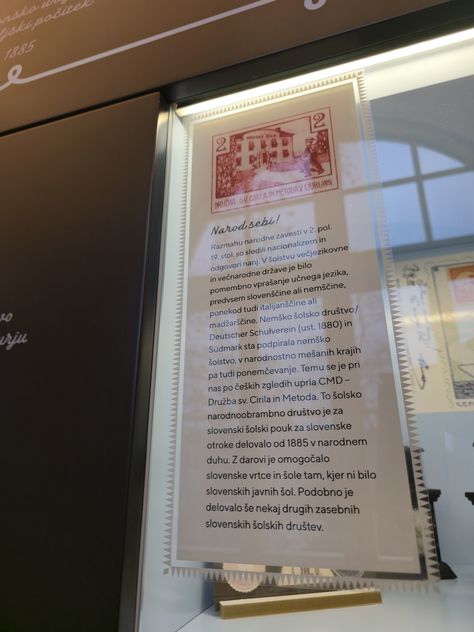 1885
2 2
DRUŽBA SV. CIRILA IN METODA V LJUBLJANI
Narod sebi!
Razmahu narodne zavesti v 2. pol.
19. stol. so sledili nacionalizem in
odgovori nanj. V šolstvu večjezikovne
in večnarodne države je bilo
pomembno vprašanje učnega jezika,
predvsem slovenščine ali nemščine,
ponekod tudi italijanščine ali
madžarščine. Nemško šolsko društvo/
Deutscher Schulverein (ust. 1880) in
Südmark sta podpirala nemško
šolstvo, v narodnostno mešanih krajih
pa tudi ponemčevanje. Temu se je pri
nas po čeških zgledih uprla CMD –
Družba sv. Cirila in Metoda. To šolsko
narodnoobrambno društvo je za
slovenski šolski pouk za slovenske
otroke delovalo od 1885 v narodnem
duhu. Z darovi je omogočalo
slovenske vrtce in šole tam, kjer ni bilo
slovenskih javnih šol. Podobno je
delovalo še nekaj drugih zasebnih
slovenskih šolskih društev.